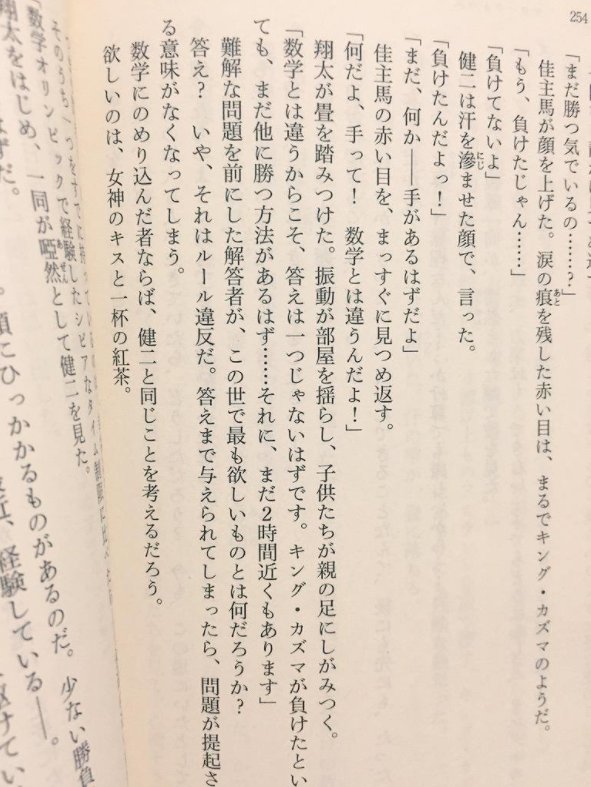 254
「まだ勝つ気でいるの……?」
佳主馬が顔を上げた。涙の痕を残した赤い目は、まるでキング・カズマのようだ。
「もう、負けたじゃん……」
「負けてないよ」
健二は汗を滲ませた顔で、言った。
「負けたんだよっ!」
「まだ、何か――手があるはずだよ」
佳主馬の赤い目を、まっすぐに見つめ返す。
「何だよ、手って! 数学とは違うんだよ!」
翔太が畳を踏みつけた。振動が部屋を揺らし、子供たちが親の足にしがみつく。
「数学とは違うからこそ、答えは一つじゃないはずです。キング・カズマが負けたとい
ても、まだ他に勝つ方法があるはず……それに、まだ2時間近くもあります」
難解な問題を前にした解答者が、この世で最も欲しいものとは何だろうか?
答え? いや、それはルール違反だ。答えまで与えられてしまったら、問題が提起さ
る意味がなくなってしまう。
数学にのめり込んだ者ならば、健二と同じことを考えるだろう。
欲しいのは、女神のキスと一杯の紅茶。
そのうち一つをすでに持って
「数学オリンピックで経験したシビアなタイム
翔太をはじめ、一同が唖然として健二を見た。
はずだ。
頭にひっかかるものがあるのだ。少ない勝負
最近、経験している――。
駆けてい